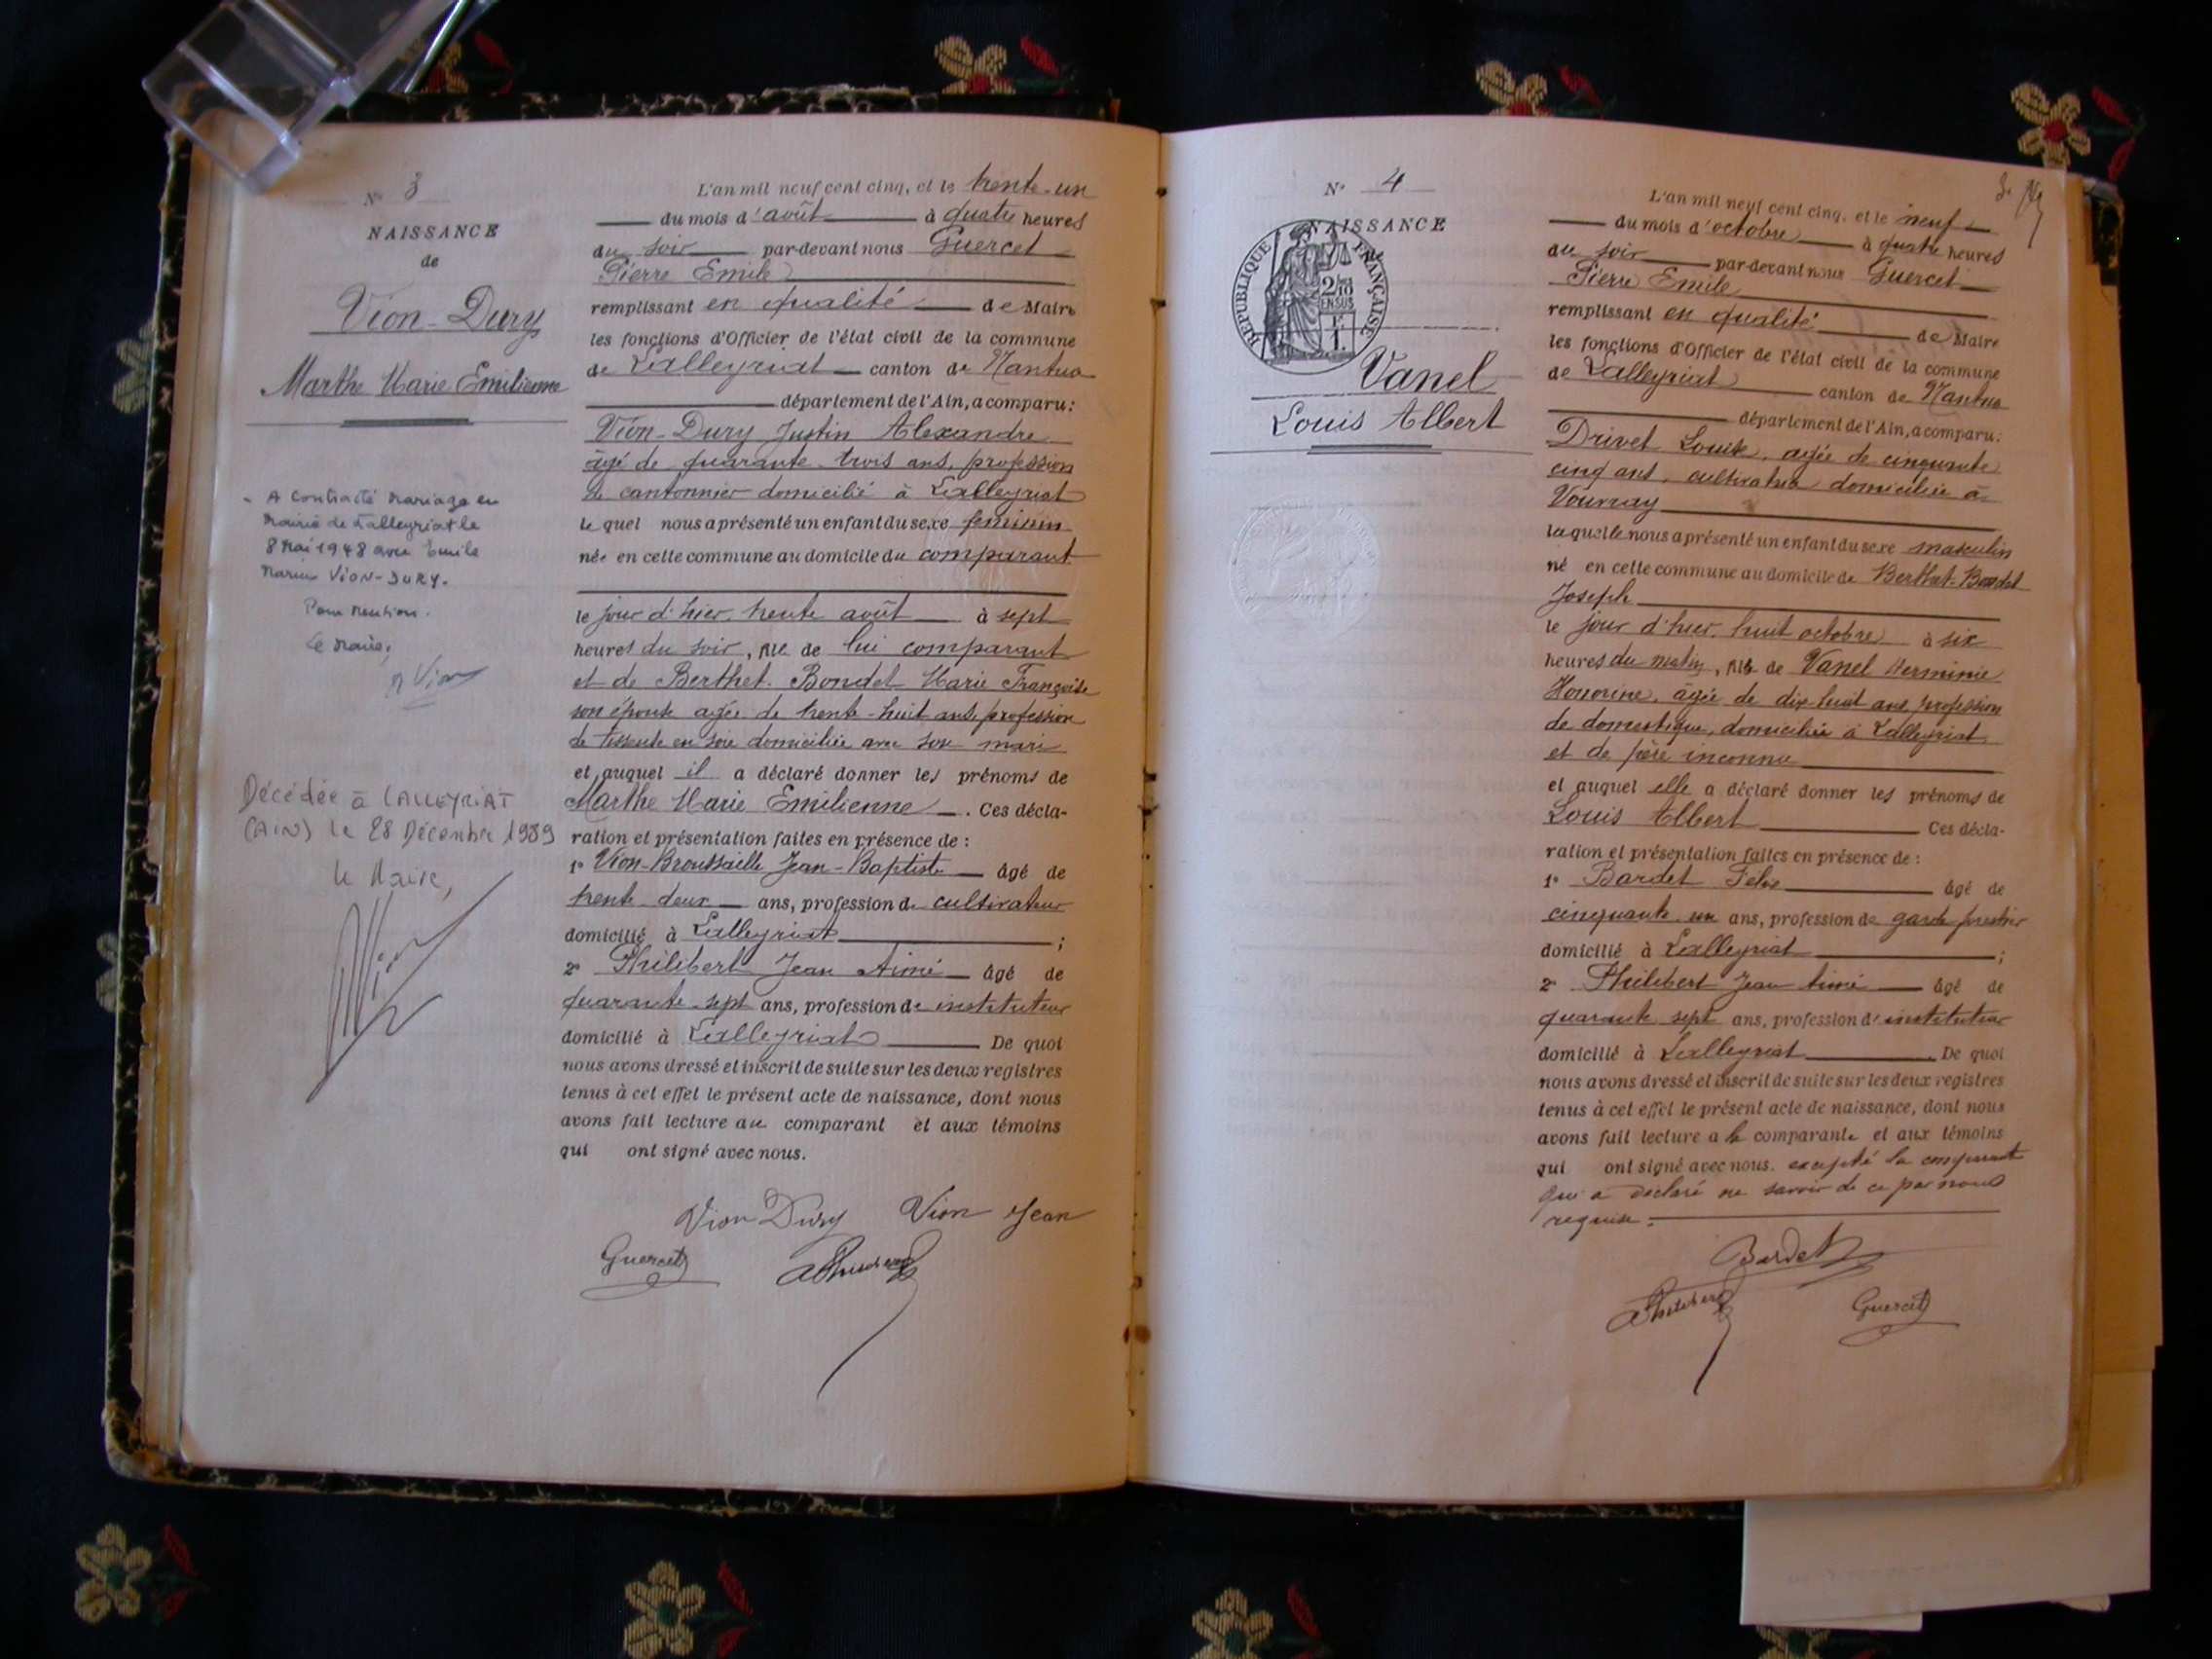 N° 3
NAISSANCE
de
Vion-Dury
Marthe Marie Emilienne
A contracté mariage en
mairie de Lalleyriat le
8 mai 1948 avec Emile
Marius VION-DURY.
Pour mention.
Le Maire,
Décédée à LALLEYRIAT
(AIN) le 28 Décembre 1989
Le Maire,
L'an mil neuf cent cinq, et le trente-un
du mois d'août à quatre heures
du soir par-devant nous Guercet
Pierre Emile
remplissant en qualité de Maire
les fonctions d'Officier de l'état civil de la commune
de Lalleyriat canton de Nantua
département de l'Ain, a comparu:
Vion-Dury Justin Alexandre
âgé de quarante-trois ans, profession
de cantonnier domicilié à Lalleyriat
lequel nous a présenté un enfant du sexe féminin
née en cette commune au domicile du comparant
le jour d'hier, trente août à sept
heures du soir, fille de lui comparant
et de Berthet-Bondet Marie Françoise
son épouse âgée de trente-huit ans, profession
de tisseuse en soie domiciliée avec son mari
et auquel il a déclaré donner les prénoms de
Marthe Marie Emilienne. Ces décla-
ration et présentation faites en présence de:
1° Vion-Broussaille Jean-Baptiste âgé de
trente-deux ans, profession de cultivateur
domicilié à Lalleyriat;
2° Philibert Jean Aimé âgé de
quarante-sept ans, profession de instituteur
domicilié à Lalleyriat De quoi
nous avons dressé et inscrit de suite sur les deux registres
tenus à cet effet le présent acte de naissance, dont nous
avons fait lecture au comparant et aux témoins
qui ont signé avec nous.
Vion Dury Vion Jean
Guercet APhilibert
N° 4
NAISSANCE
REPUBLIQUE FRANÇAISE
2/10
EN SUS
Vanel
Louis Albert
L'an mil neuf cent cinq, et le neuf
du mois d'octobre à quatre heures
du soir par-devant nous Guercet
Pierre Emile
remplissant en qualité de Maire
les fonctions d'Officier de l'état civil de la commune
de Lalleyriat canton de Nantua
département de l'Ain, a comparu:
Drivet Louise, âgée de cinquante
cinq ans, cultivatrice domiciliée à
Vouvray
laquelle nous a présenté un enfant du sexe masculin
né en cette commune au domicile de Berthet-Bondet
Joseph
le jour d'hier, huit octobre à six
heures du matin, fils de Vanel Herminie
Honorine, âgée de dix-huit ans, profession
de domestique, domiciliée à Lalleyriat
et de père inconnu
et auquel elle a déclaré donner les prénoms de
Louis Albert Ces décla-
ration et présentation faites en présence de:
1° Bardet Félix âgé de
cinquante-un ans, profession de garde forestier
domicilié à Lalleyriat;
2° Philibert Jean Aimé âgé de
quarante sept ans, profession d'instituteur
domicilié à Lalleyriat. De quoi
nous avons dressé et inscrit de suite sur les deux registres
tenus à cet effet le présent acte de naissance, dont nous
avons fait lecture a la comparante et aux témoins
qui ont signé avec nous. excepté la comparante
qui a déclaré ne savoir de ce par nous
requise.
Bardet
APhilibert Guercet